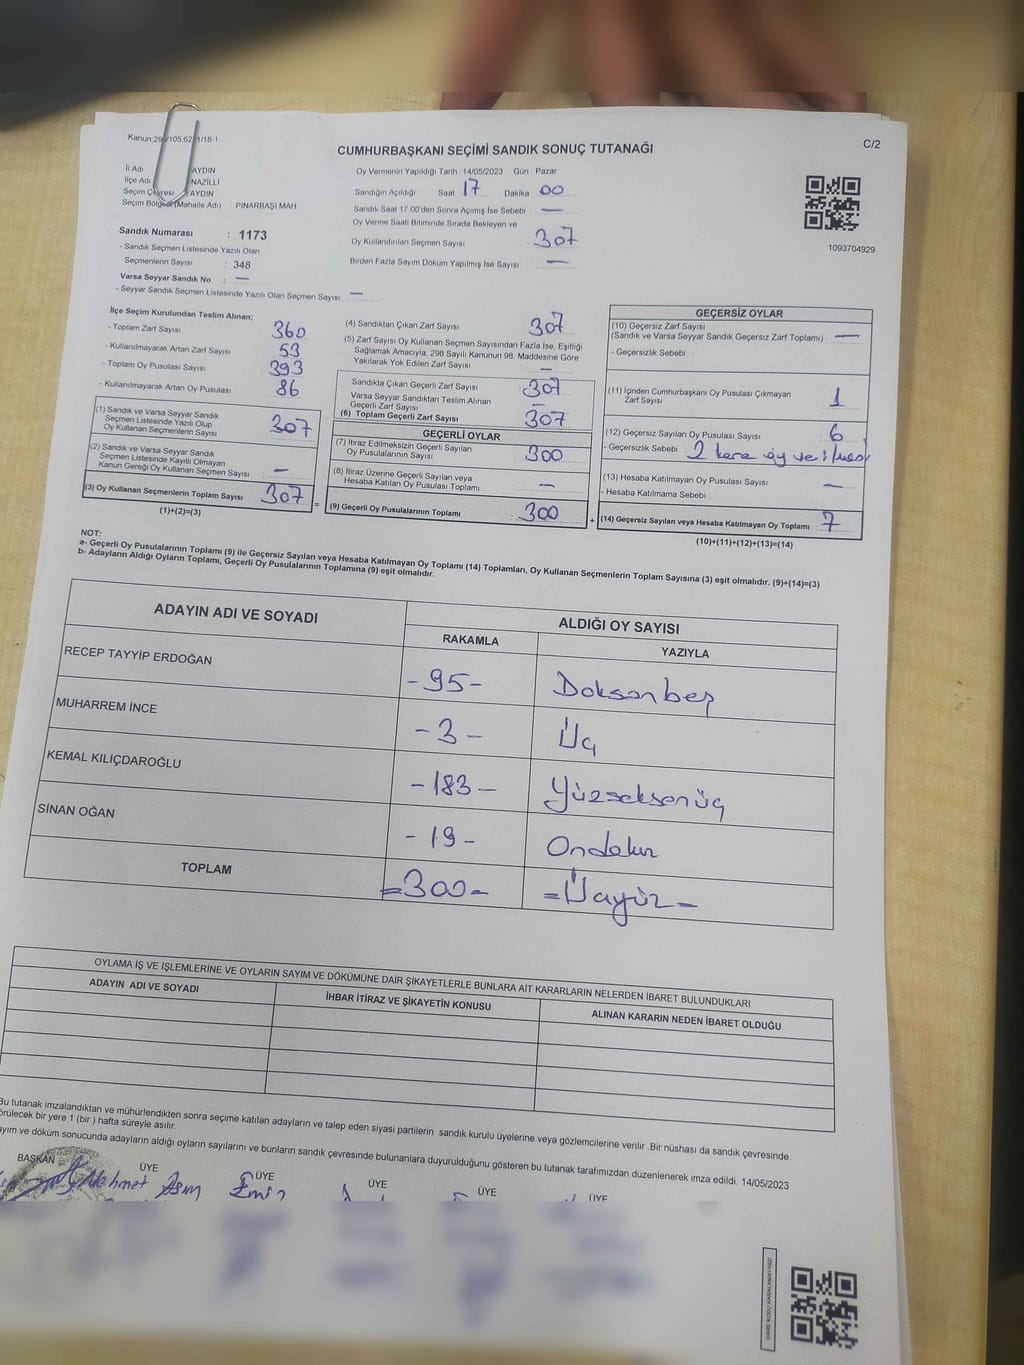 Kanun:29
/105;62
1/18-1
C/2
CUMHURBAŞKANI SEÇİMİ SANDIK SONUÇ TUTANAĞI
İl Adı AYDIN
İlçe Adı NAZİLLİ
Seçim Çevresi AYDIN
Seçim Bölgesi (Mahalle Adı) PINARBAŞI MAH
Oy Vermenin Yapıldığı Tarih 14/05/2023 Gün : Pazar
Sandığın Açıldığı Saat 17 Dakika 00
Sandık Saat 17:00'den Sonra Açımış İse Sebebi : —
Oy Verme Saati Bitiminde Sırada Bekleyen ve
Oy Kullandırılan Seçmen Sayısı 307
Birden Fazla Sayım Döküm Yapılmış İse Sayısı : —
1093704929
Sandık Numarası : 1173
- Sandık Seçmen Listesinde Yazılı Olan
Seçmenlerin Sayısı : 348
Varsa Seyyar Sandık No : —
- Seyyar Sandık Seçmen Listesinde Yazılı Olan Seçmen Sayısı: —
İlçe Seçim Kurulundan Teslim Alınan;
- Toplam Zarf Sayısı 360
- Kullanılmayarak Artan Zarf Sayısı 53
- Toplam Oy Pusulası Sayısı 393
- Kullanılmayarak Artan Oy Pusulası 86
(1) Sandık ve Varsa Seyyar Sandık
Seçmen Listesinde Yazılı Olup
Oy Kullanan Seçmenlerin Sayısı 307
(2) Sandık ve Varsa Seyyar Sandık
Seçmen Listesinde Kayıtlı Olmayan
Kanun Gereği Oy Kullanan Seçmen Sayısı —
(3) Oy Kullanan Seçmenlerin Toplam Sayısı 307 =
(1)+(2)=(3)
(4) Sandıktan Çıkan Zarf Sayısı 307
(5) Zarf Sayısı Oy Kullanan Seçmen Sayısından Fazla İse, Eşitliği
Sağlamak Amacıyla, 298 Sayılı Kanunun 98. Maddesine Göre
Yakılarak Yok Edilen Zarf Sayısı —
Sandıkta Çıkan Geçerli Zarf Sayısı 307
Varsa Seyyar Sandıktan Teslim Alınan
Geçerli Zarf Sayısı —
(6) Toplam Geçerli Zarf Sayısı 307
GEÇERLİ OYLAR
(7) İtiraz Edilmeksizin Geçerli Sayılan
Oy Pusulalarının Sayısı 300
(8) İtiraz Üzerine Geçerli Sayılan veya
Hesaba Katılan Oy Pusulası Toplamı —
(9) Geçerli Oy Pusulalarının Toplamı 300 +
GEÇERSİZ OYLAR
(10) Geçersiz Zarf Sayısı
(Sandık ve Varsa Seyyar Sandık Geçersiz Zarf Toplamı) : —
- Geçersizlik Sebebi :
(11) İçinden Cumhurbaşkanı Oy Pusulası Çıkmayan
Zarf Sayısı 1
(12) Geçersiz Sayılan Oy Pusulası Sayısı 6
- Geçersizlik Sebebi : 2 kere oy
(13) Hesaba Katılmayan Oy Pusulası Sayısı —
- Hesaba Katılmama Sebebi :
(14) Geçersiz Sayılan veya Hesaba Katılmayan Oy Toplamı : 7
(10)+(11)+(12)+(13)=(14)
NOT:
a- Geçerli Oy Pusulalarının Toplamı (9) ile Geçersiz Sayılan veya Hesaba Katılmayan Oy Toplamı (14) Toplamları, Oy Kullanan Seçmenlerin Toplam Sayısına (3) eşit olmalıdır. (9)+(14)=(3)
b- Adayların Aldığı Oyların Toplamı, Geçerli Oy Pusulalarının Toplamına (9) eşit olmalıdır.
ADAYIN ADI VE SOYADI
ALDIĞI OY SAYISI
RAKAMLA YAZIYLA
RECEP TAYYİP ERDOĞAN -95- Doksanbeş
MUHARREM İNCE -3- Üç
KEMAL KILIÇDAROĞLU -183- Yüzseksenüç
SİNAN OĞAN -19- Ondokuz
TOPLAM =300= =Üçyüz=
OYLAMA İŞ VE İŞLEMLERİNE VE OYLARIN SAYIM VE DÖKÜMÜNE DAİR ŞİKAYETLERLE BUNLARA AİT KARARLARIN NELERDEN İBARET BULUNDUKLARI
ADAYIN ADI VE SOYADI
İHBAR İTİRAZ VE ŞİKAYETİN KONUSU
ALINAN KARARIN NEDEN İBARET OLDUĞU
Bu tutanak imzalandıktan ve mühürlendikten sonra seçime katılan adayların ve talep eden siyasi partilerin sandık kurulu üyelerine veya gözlemcilerine verilir .Bir nüshası da sandık çevresinde
örülecek bir yere 1 (bir ) hafta süreyle asılır.
ayım ve döküm sonucunda adayların aldığı oyların sayılarını ve bunların sandık çevresinde bulunanlara duyurulduğunu gösteren bu tutanak tarafımızdan düzenlenerek imza edildi. 14/05/2023
BAŞKAN ÜYE ÜYE ÜYE ÜYE ÜYE
Mehmet
Emin
KARE KODU KARALAMAYINIZ!